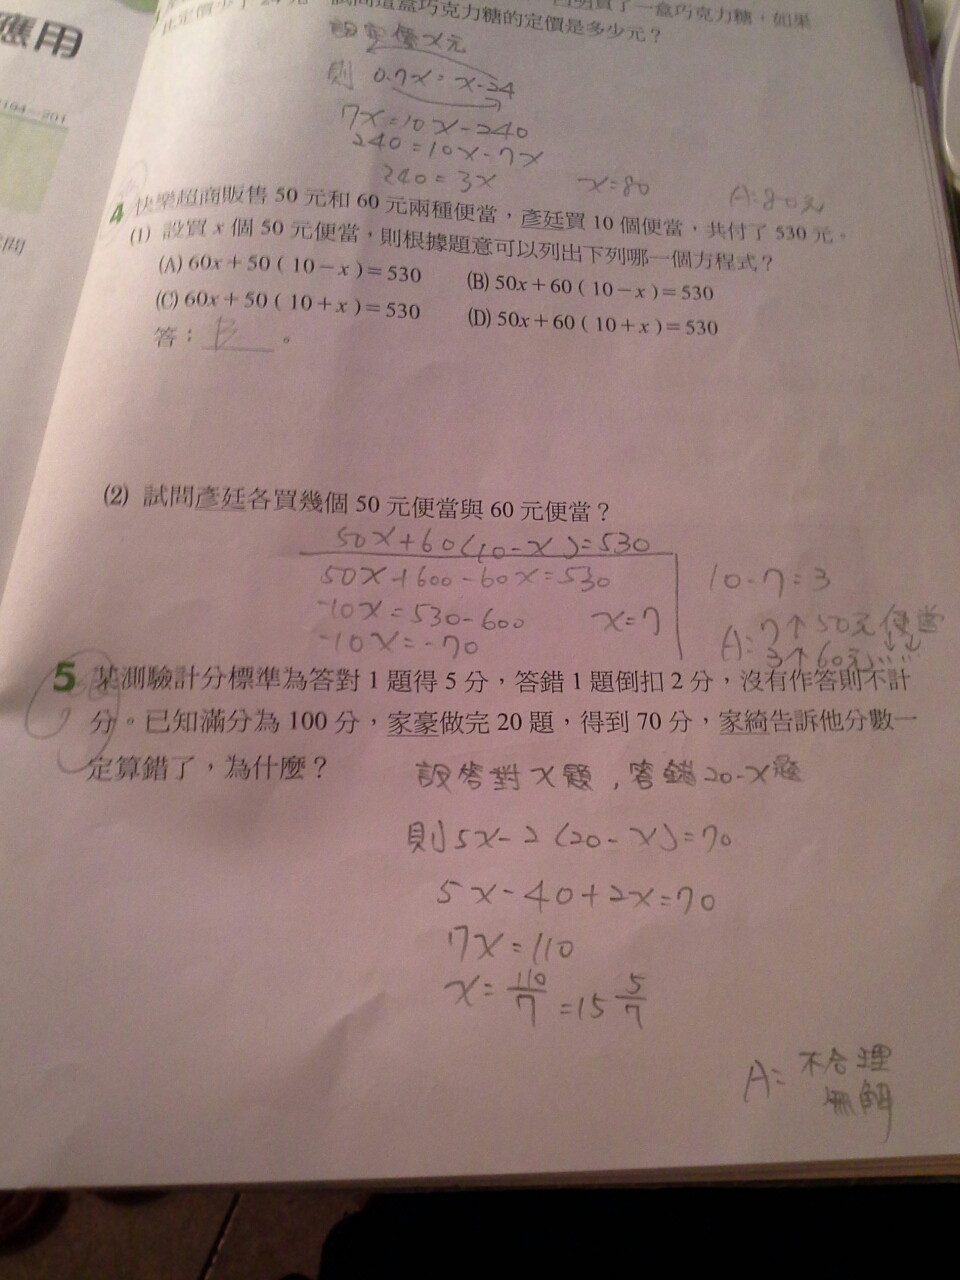 應用
194～201
問
白明買了一盒巧克力糖，如果
比定價少了 24 元，試問這盒巧克力糖的定價是多少元？
設定價x元
則 0.7x=x-24
7x=10x-240
240=10x-7x
240=3x x=80 A:80元
4 快樂超商販售 50 元和 60 元兩種便當，彥廷買 10 個便當，共付了 530 元。
(1) 設買 x 個 50 元便當，則根據題意可以列出下列哪一個方程式？
(A) 60x+50（10-x）=530 (B) 50x+60（10-x）=530
(C) 60x+50（10+x）=530 (D) 50x+60（10+x）=530
答：B。
(2) 試問彥廷各買幾個 50 元便當與 60 元便當？
50x+60(10-x)=530
50x+600-60x=530 10-7=3
-10x=530-600 x=7
-10x=-70
A: 7個50元便當
3個60元……
5 某測驗計分標準為答對 1 題得 5 分，答錯 1 題倒扣 2 分，沒有作答則不計
分。已知滿分為 100 分，家豪做完 20 題，得到 70 分，家綺告訴他分數一
定算錯了，為什麼？
設答對x題，答錯20-x題
則5x-2(20-x)=70
5x-40+2x=70
7x=110
x=110/7=15 5/7
A: 不合理
無解